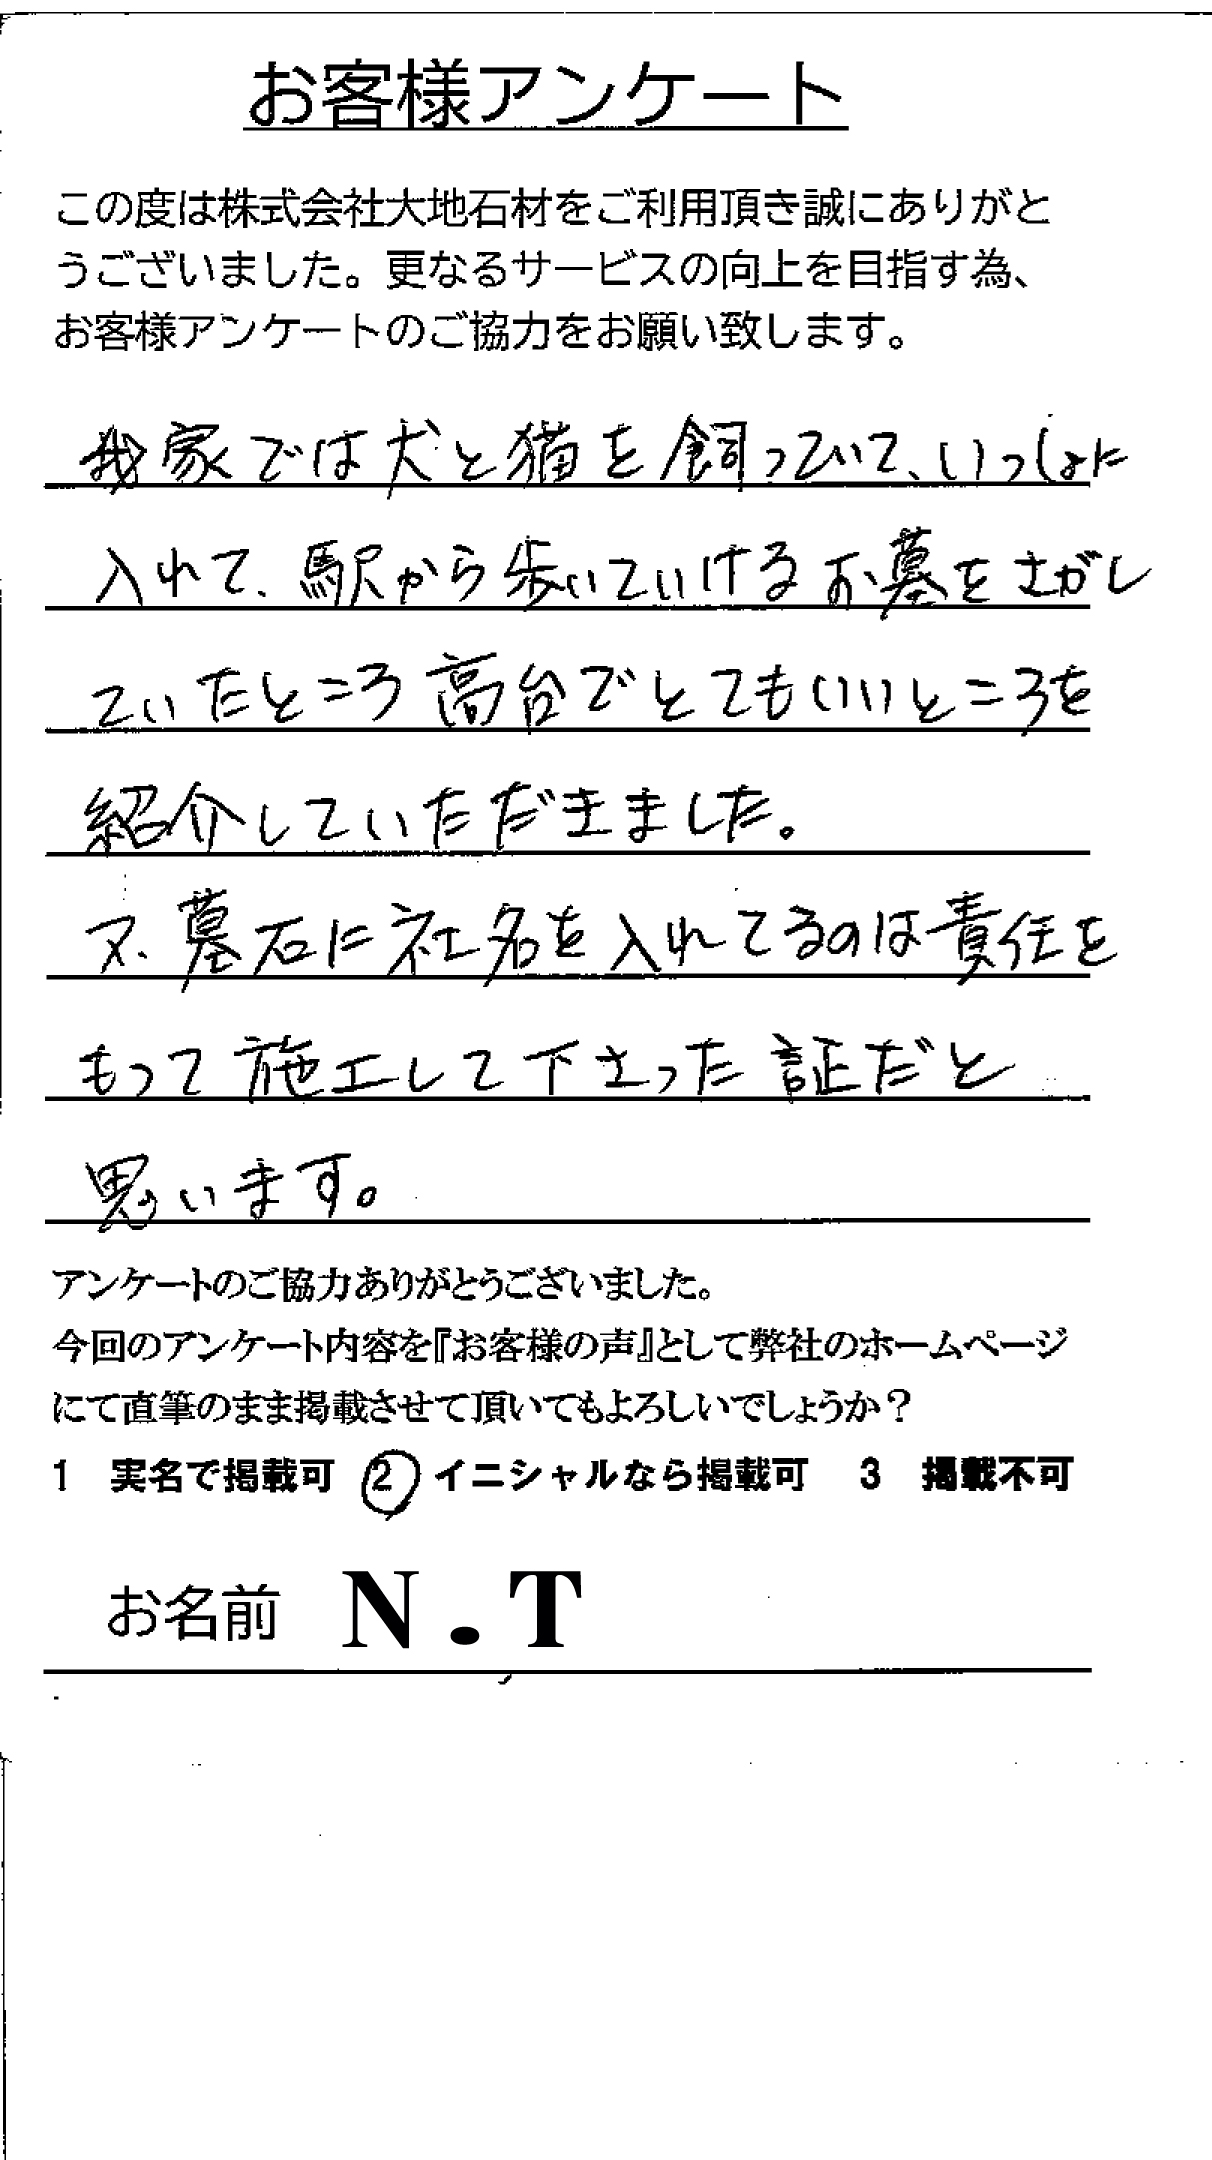 お客様アンケート
この度は株式会社大地石材をご利用頂き誠にありがと
うございました。更なるサービスの向上を目指す為、
お客様アンケートのご協力をお願い致します。
我家では犬と猫を飼っていて、いっしょに
入れて、駅から歩いていけるお墓をさがし
ていたところ高台でとてもいいところを
紹介していただきました。
又、墓石に社名を入れてるのは責任を
もって施工して下さった証だと
思います。
アンケートのご協力ありがとうございました。
今回のアンケート内容を『お客様の声』として弊社のホームページ
にて直筆のまま掲載させて頂いてもよろしいでしょうか？
1 実名で掲載可 ② イニシャルなら掲載可 3 掲載不可
お名前 N.T